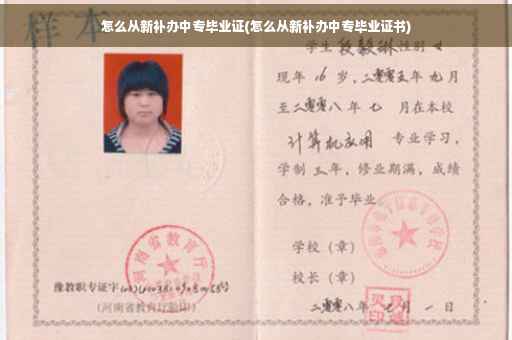 怎么从新补办中专毕业证(怎么从新补办中专毕业证书)
样本
学生段毅琳性别女
现年16岁，二零零五年九月
至二零零八年七月在本校
计算机应用 专业学习，
学制三年，修业期满，成绩
合格，准予毕业。
学校（章）
校长（章）
二零零八年七月一日
河南省教育厅
豫教职专证字
(河南省教育厅验印)